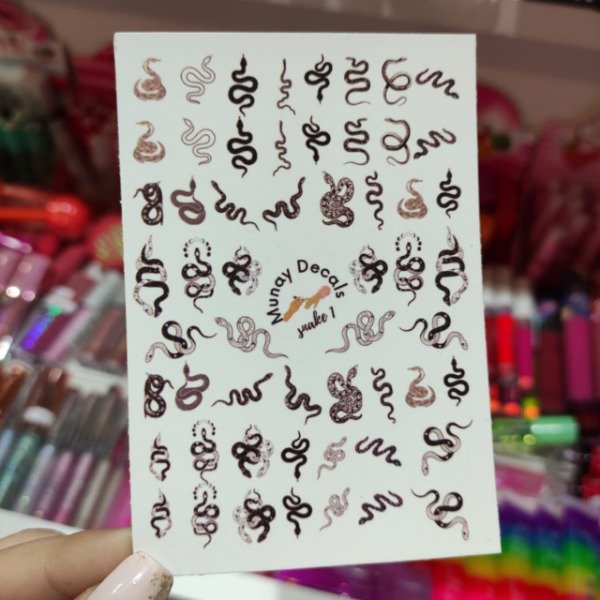 Munay Decals
snake 1